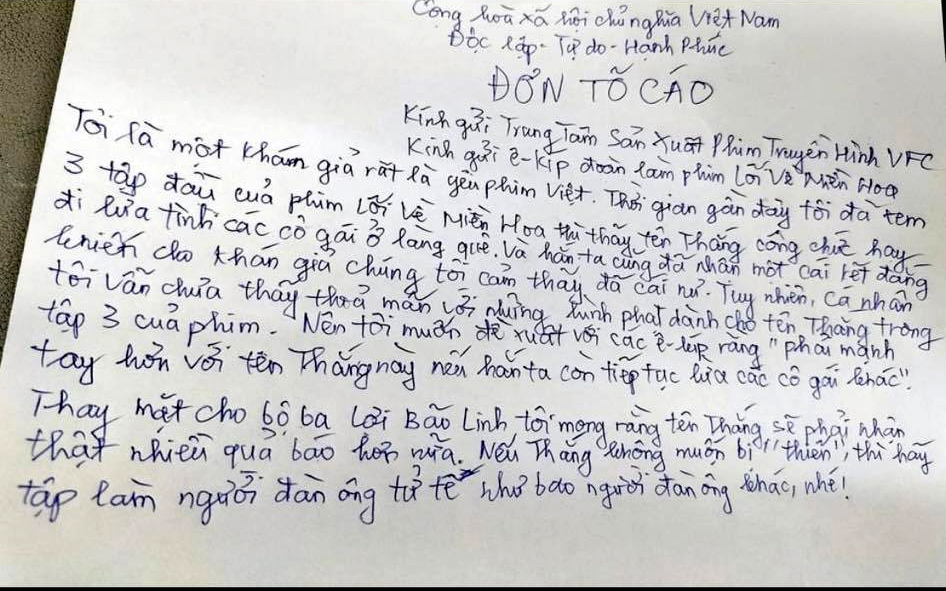 Cộng hoà xã hội chủ nghĩa Việt Nam
Độc lập - Tự do - Hạnh Phúc
ĐƠN TỐ CÁO
Kính gửi Trung Tâm Sản Xuất Phim Truyền Hình VFC
Kính gửi ê-kíp đoàn làm phim Lối Về Miền Hoa
Tôi là một khán giả rất là yêu phim Việt. Thời gian gần đây tôi đã xem
3 tập đầu của phim Lối Về Miền Hoa thì thấy tên Thắng công chức hay
đi lừa tình các cô gái ở làng quê. Và hắn ta cũng đã nhận một cái kết đắng
khiến cho khán giả chúng tôi cảm thấy đã cái nư. Tuy nhiên, cá nhân
tôi vẫn chưa thấy thoả mãn với những hình phạt dành cho tên Thắng trong
tập 3 của phim. Nên tôi muốn đề xuất với các ê-kíp rằng "phải mạnh
tay hơn với tên Thắng này nếu hắn ta còn tiếp tục lừa các cô gái khác".
Thay mặt cho bộ ba Lợi Bảo Linh tôi mong rằng tên Thắng sẽ phải nhận
thật nhiều quả báo hơn nữa. Nếu Thắng không muốn bị "thiến", thì hãy
tập làm người đàn ông tử tế như bao người đàn ông khác, nhé!